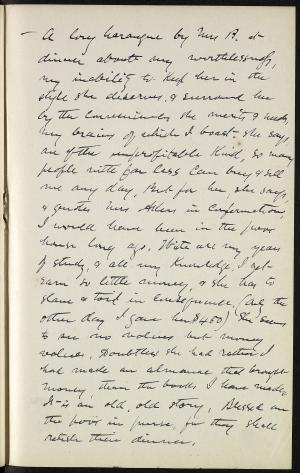 – A long harangue by Mrs B. at
dinner about my worthlessness,
my inability to keep her in the
style she deserves, & surround her
by the conveniences she merits & needs,
my brains of which I boast, she says,
are of the unprofitable kind, so many
people with far less can buy & sell
me any day. But for her, she says,
& quotes Mrs in confirmation,
I would have been in the poor
house long ago. With all my years
of study, & all my knowledge, I get
earn so little money, & she has to
slave & toil in consequence, (only the
other day I gave her $450) She seems
to see no values but money
values. Doubtless she had rather I
had made an almanac that brought
money, than the books I have made.
It is an old, old story. Blessed are
the poor in purse, for they shall
relish their dinner.